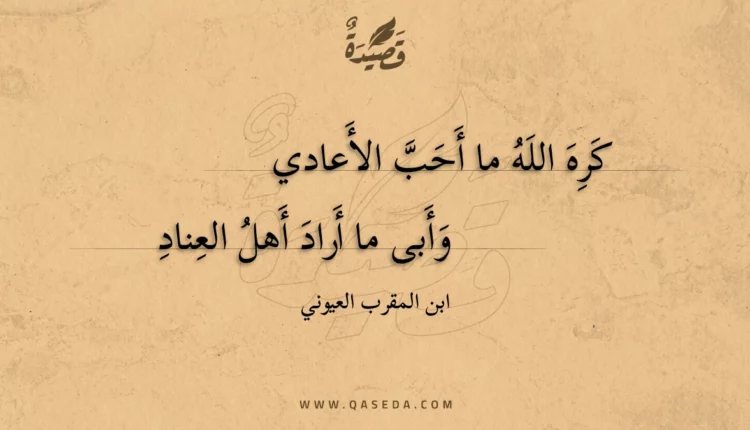 قَصِيْدَةٌ
كَرِهَ اللَهُ ما أَحَبَّ الأَعادي
وَأَبى ما أَرادَ أَهلُ العِنادِ
ابن المقرب العيوني
WWW.QASEDA.COM